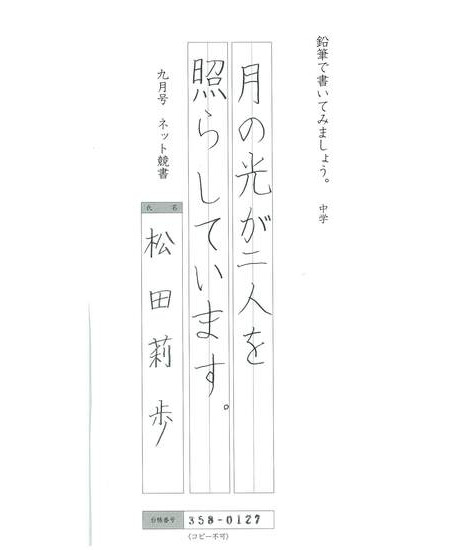 鉛筆で書いてみましょう。 中学
月の光が二人を
照らしています。
九月号 ネット競書
氏 名
松田莉歩
合格番号 358-0127
(コピー不可)